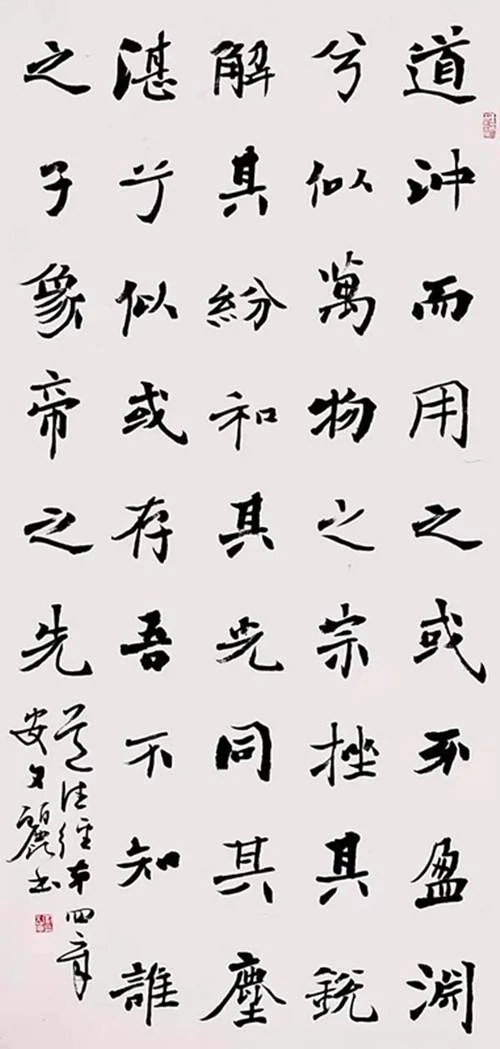 道沖而用之或不盈淵
兮似萬物之宗挫其銳
解其紛和其光同其塵
湛兮似或存吾不知誰
之子象帝之先
道德經第四章
安文麗書